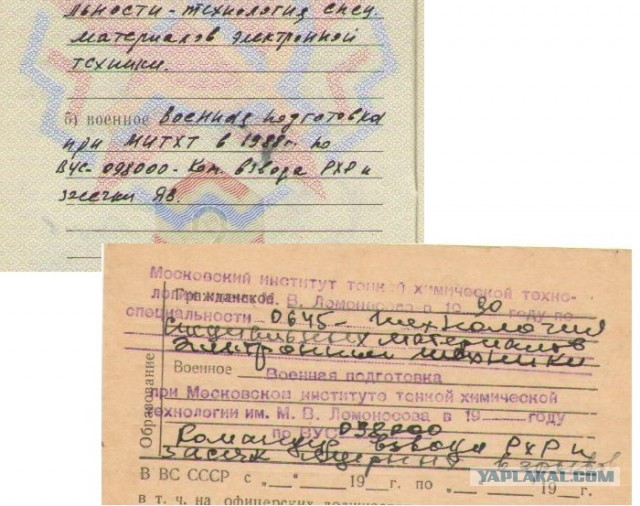 льности - технология спец.
материалов электронной
техники.
б) военное Военная подготовка
при МИТХТ в 1988г. по
ВУС- 098000- Ком. взвода РХР и
засечки ЯВ.
Московский институт тонкой химической техно-
логии имени М. В. Ломоносова в 19 90 году по
Гражданское
специальности 0645 - технология
специальных материалов
электронной техники
Образование
Военное Военная подготовка
при Московском институте тонкой химической
технологии им. М. В. Ломоносова в 19 году
по ВУС 098000
Командир взвода РХР и
засечк ядерных взрывов
В ВС СССР с „ “ 19 г. по „ “ 19 г.
в т. ч. на офицерских
YAPLAKAL.COM